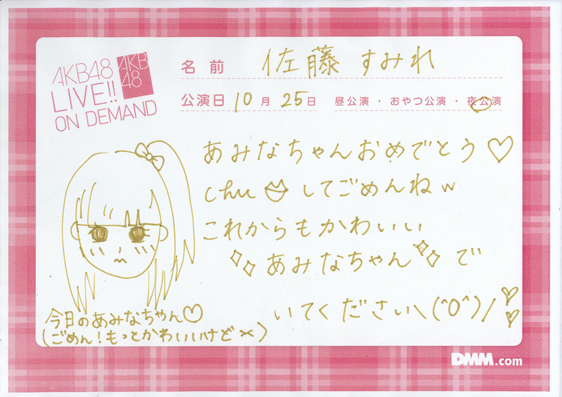 AKB48
LIVE!!
ON DEMAND
AKB
48
名前 佐藤すみれ
公演日 10月25日 昼公演・おやつ公演・夜公演
あみなちゃんおめでとう♡
chuしてごめんねw
これからもかわいい
あみなちゃんで
いてください\(^O^)/
今日のあみなちゃん♡
(ごめん!もっとかわいいけど〆)
DMM.com